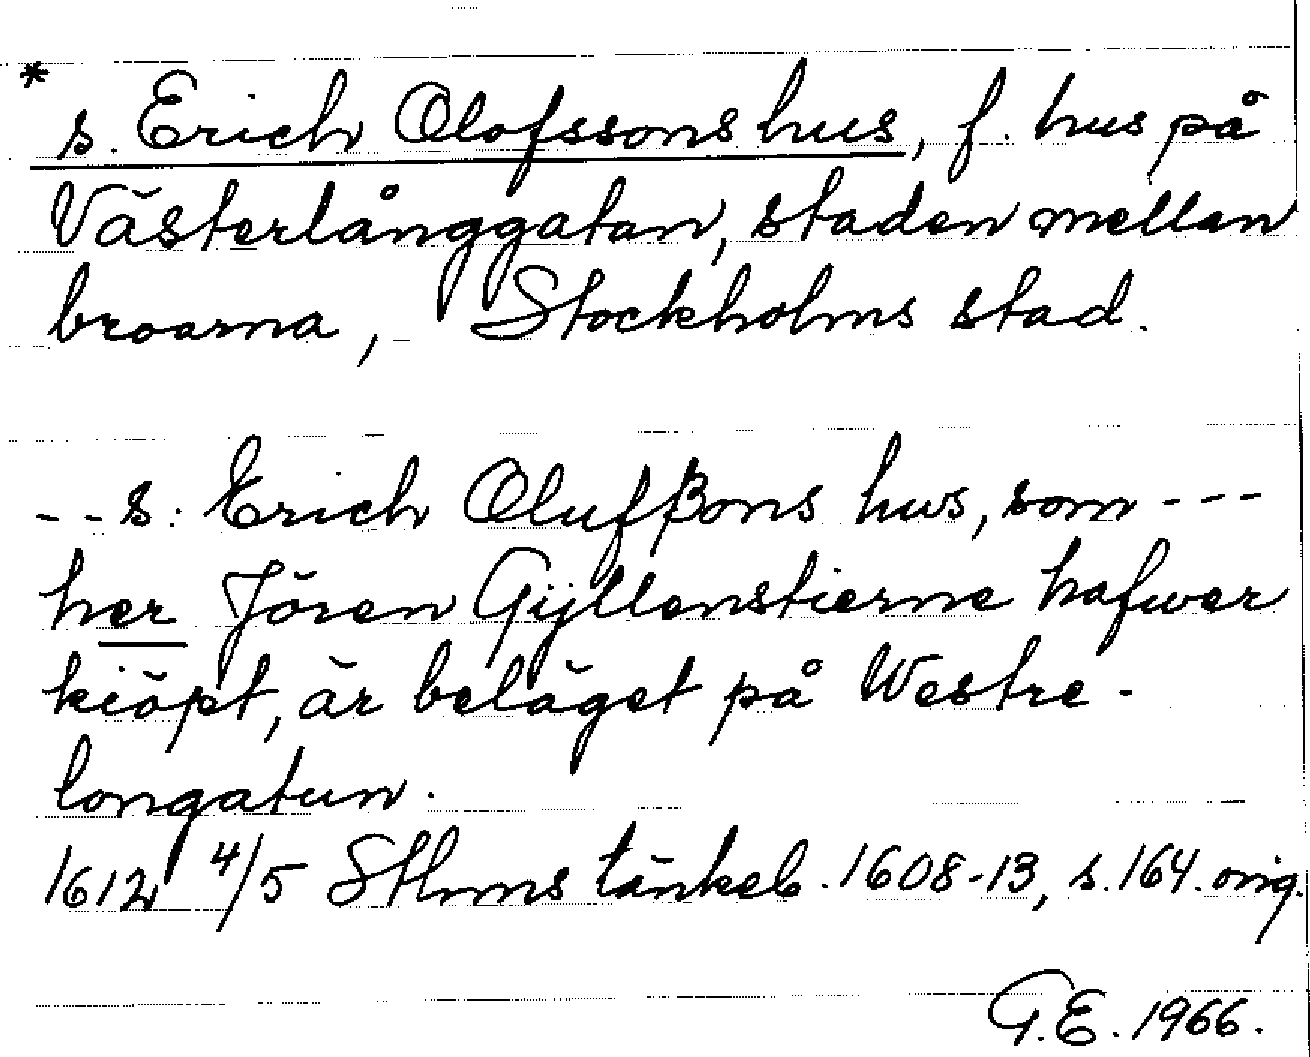 * s. Erich Olofssons hus, f. hus på
Västerlånggatan, staden mellan
broarna, Stockholms stad.
- - s: Erich Olufßons hus, som - - -
her Jören Gÿllenstierne hafwer
kiöpt, är beläget på Westre-
longatun.
1612 4/5 Sthms tänkeb. 1608-13, s. 164. orig.
G.E. 1966.